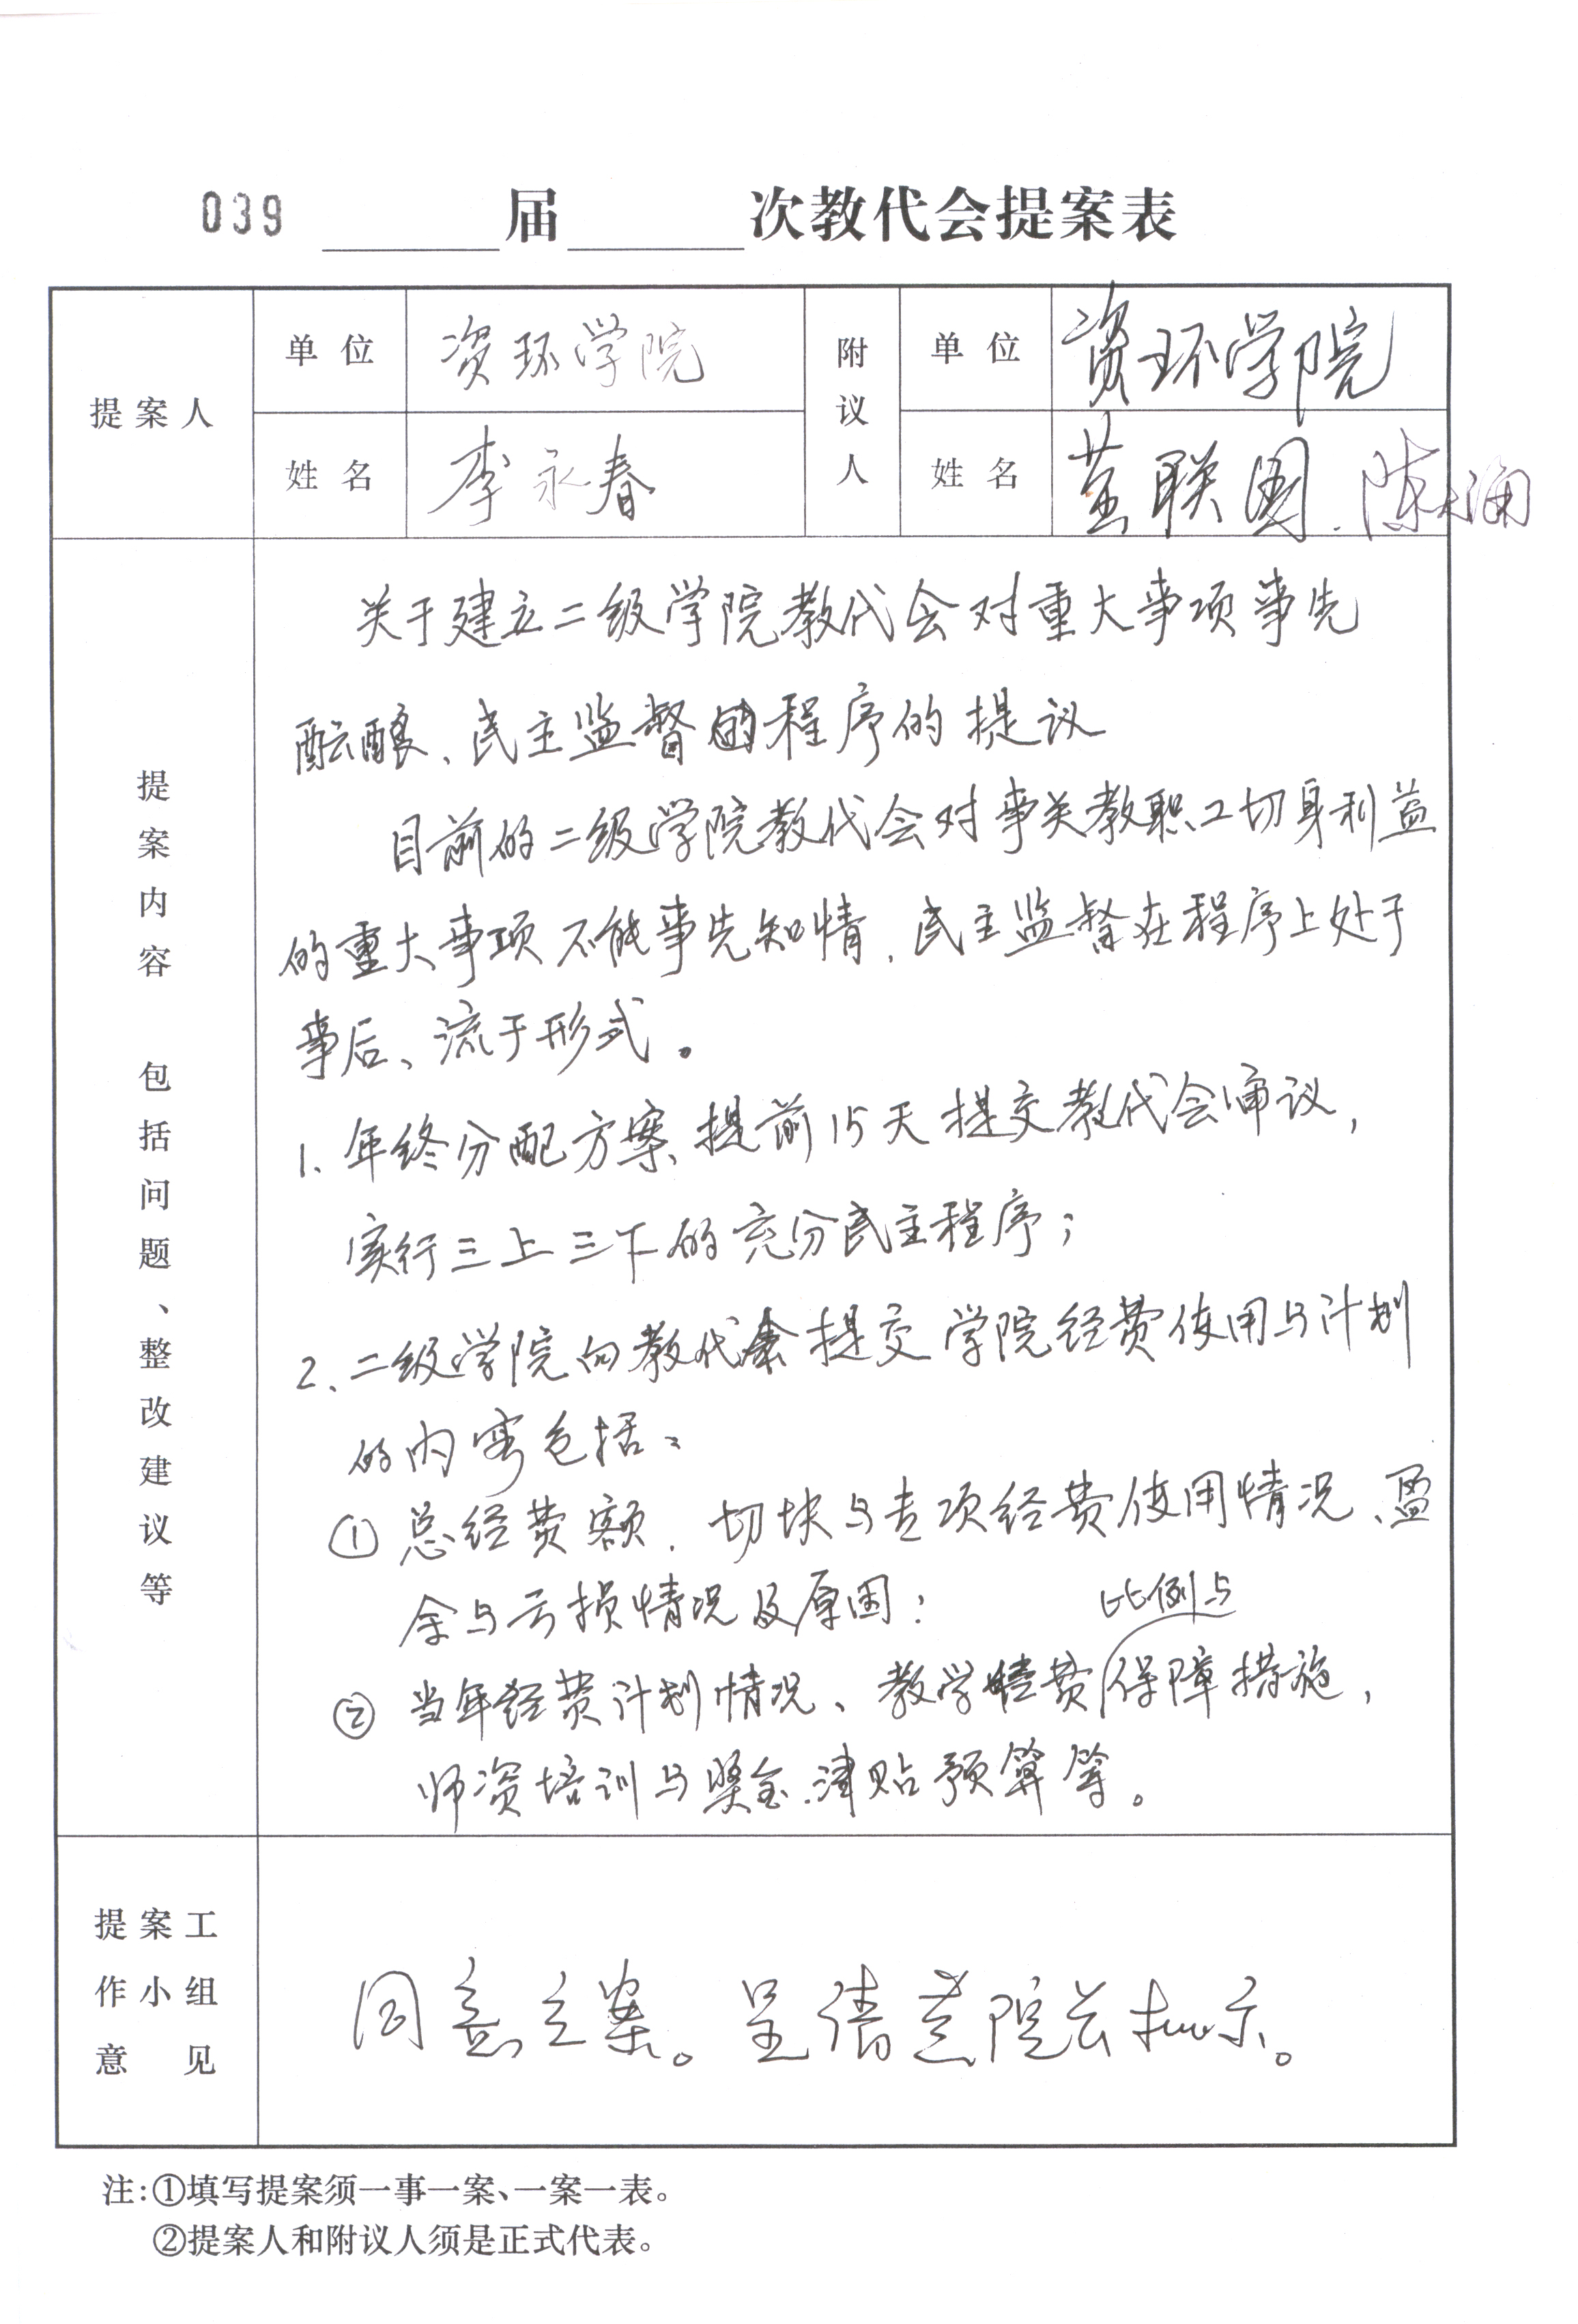 039 届 次教代会提案表
提案人 单位 资环学院 附议人 单位 资环学院
姓名 李永春 姓名 联国、陈
提案内容 包括问题、整改建议等
关于建立二级学院教代会对重大事项事先
酝酿、民主监督的程序的提议
目前的二级学院教代会对事关教职工切身利益
的重大事项不能事先知情,民主监督在程序上处于
事后、流于形式。
1、年终分配方案、提前15天提交教代会审议,
实行三上三下的充分民主程序;
2、二级学院向教代会提交学院经费使用与计划
的内容包括:
① 总经费额、切块与专项经费使用情况、盈
余与亏损情况及原因;
② 当年经费计划情况、教学经费比例与保障措施,
师资培训与奖金、津贴预算等。
提案工作小组意见
同意立案。呈请 院长批示。
注:①填写提案须一事一案、一案一表。
②提案人和附议人须是正式代表。